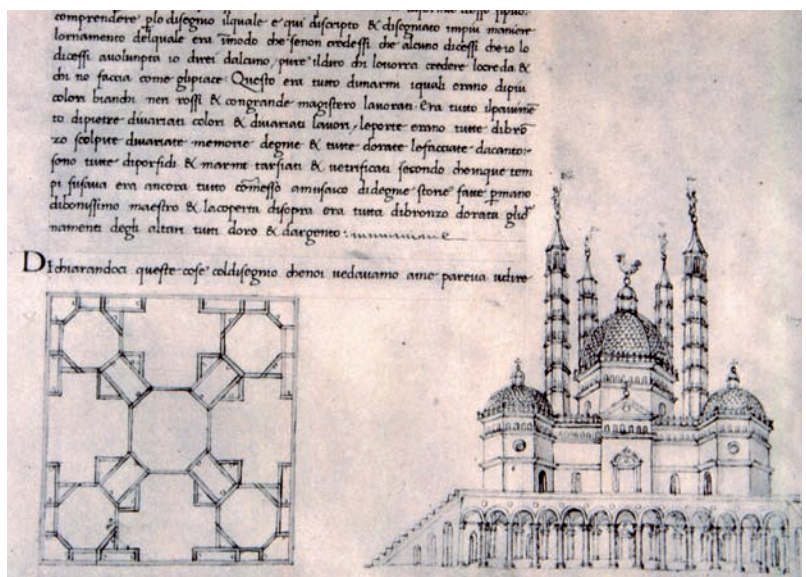 comprendere plo disegno ilquale e qui discripto & disegniato impiu maniere
lornamento delquale era imodo che senon credessi che alcuno dicessi che io lo
dicessi io direi dalcuno / pure ildiro chi louorra credere locreda &
chi no faccia come glipiace Questo era tutto dimarmi iquali erano dipiu
colori bianchi neri rossi & congrande magistero lauorati. Era tutto ilpauimē
to dipietre diuariati colori & diuariati lauori / leporte erano tutte dibrō
zo scolpite diuariate memorie degnie & tutte dorate lefacciate dacanto
sono tutte diporfidi & marmi tarsiati & uetrificati secondo tem
pi susaua era ancora tutto comesso amusaico didegne storie fatte pmano
dibonissimo maestro & lacoperta disopra era tutta dibronzo dorata glior
namenti degli altari tutti doro & dargento
Dichiarandoci queste cose coldisegno chenoi uedauamo ame pareua udire